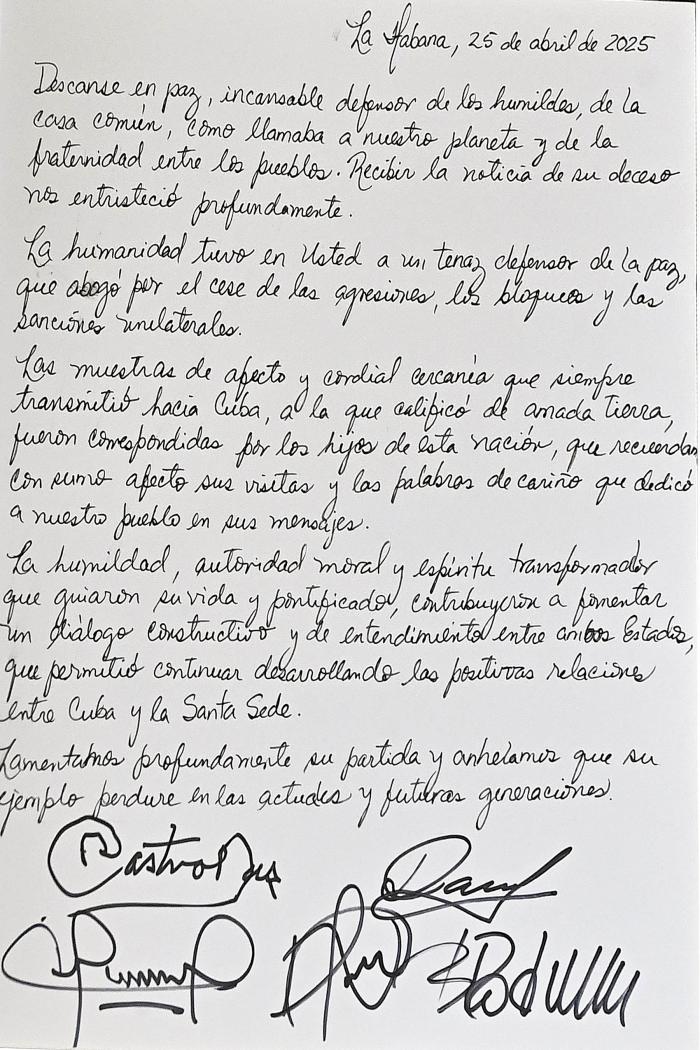 La Habana, 25 de abril de 2025
Descanse en paz, incansable defensor de los humildes, de la
casa común, como llamaba a nuestro planeta y de la
fraternidad entre los pueblos. Recibir la noticia de su deceso
nos entristeció profundamente.
La humanidad tuvo en Usted a un tenaz defensor de la paz,
que abogó por el cese de las agresiones, los bloqueos y las
sanciones unilaterales.
Las muestras de afecto y cordial cercanía que siempre
transmitió hacia Cuba, a la que calificó de amada tierra,
fueron correspondidas por los hijos de esta nación, que recuerdan
con sumo afecto sus visitas y las palabras de cariño que dedicó
a nuestro pueblo en sus mensajes.
La humildad, autoridad moral y espíritu transformador
que guiaron su vida y pontificado, contribuyeron a fomentar
un diálogo constructivo y de entendimiento entre ambos Estados,
que permitió continuar desarrollando las positivas relaciones
entre Cuba y la Santa Sede.
Lamentamos profundamente su partida y anhelamos que su
ejemplo perdure en las actudes y futuras generaciones.
RCastroRuz